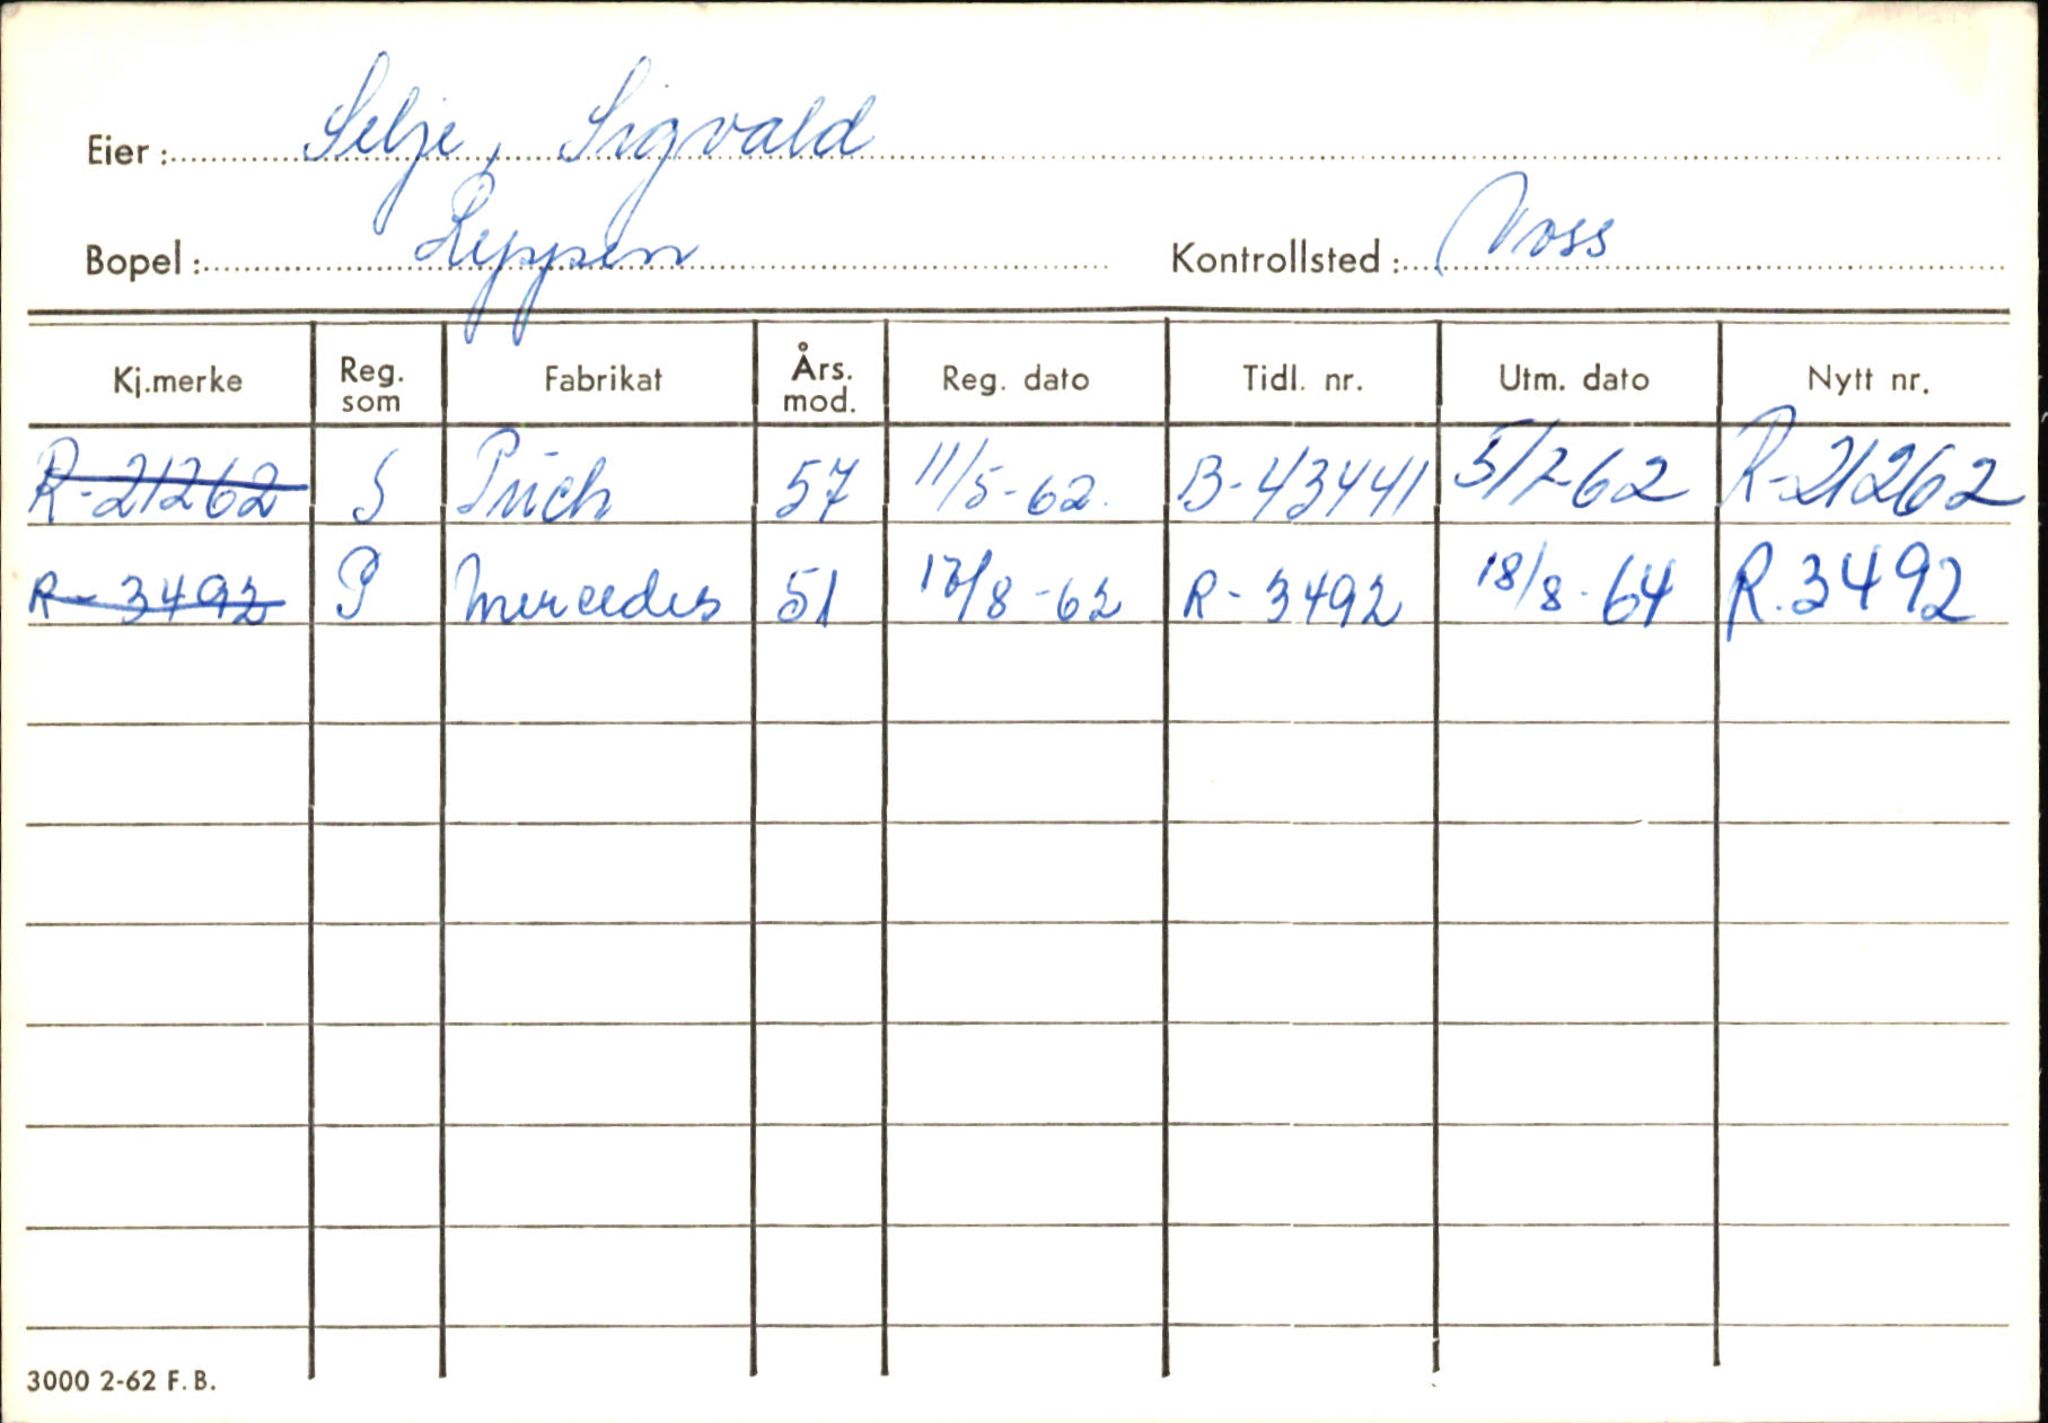 Eier : Selje, Sigvald
Bopel : Reppen Kontrollsted : Voss
Kj.merke Reg. som Fabrikat Års. mod. Reg. dato Tidl. nr. Utm. dato Nytt nr.
R-21262 S Puch 57 11/5-62. B-43441 5/7-62 R-21262
R-3492 P Mercedes 51 /8-62 R-3492 18/8-64 R.3492
3000 2-62 F.B.